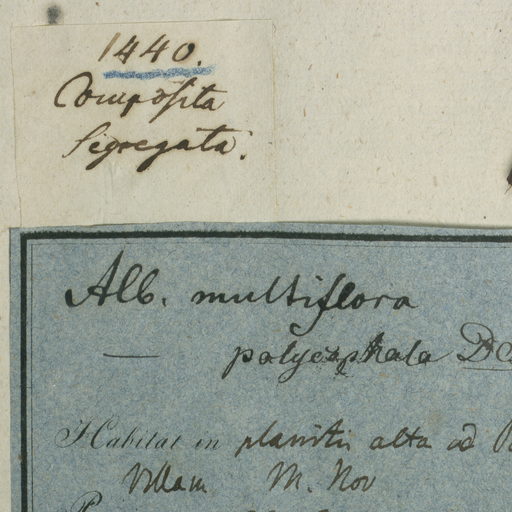 1440.
Composita
Segregata.
Alb. multiflora
— polycephala DC
Habitat in planitie alta ad
Villam M. Nov